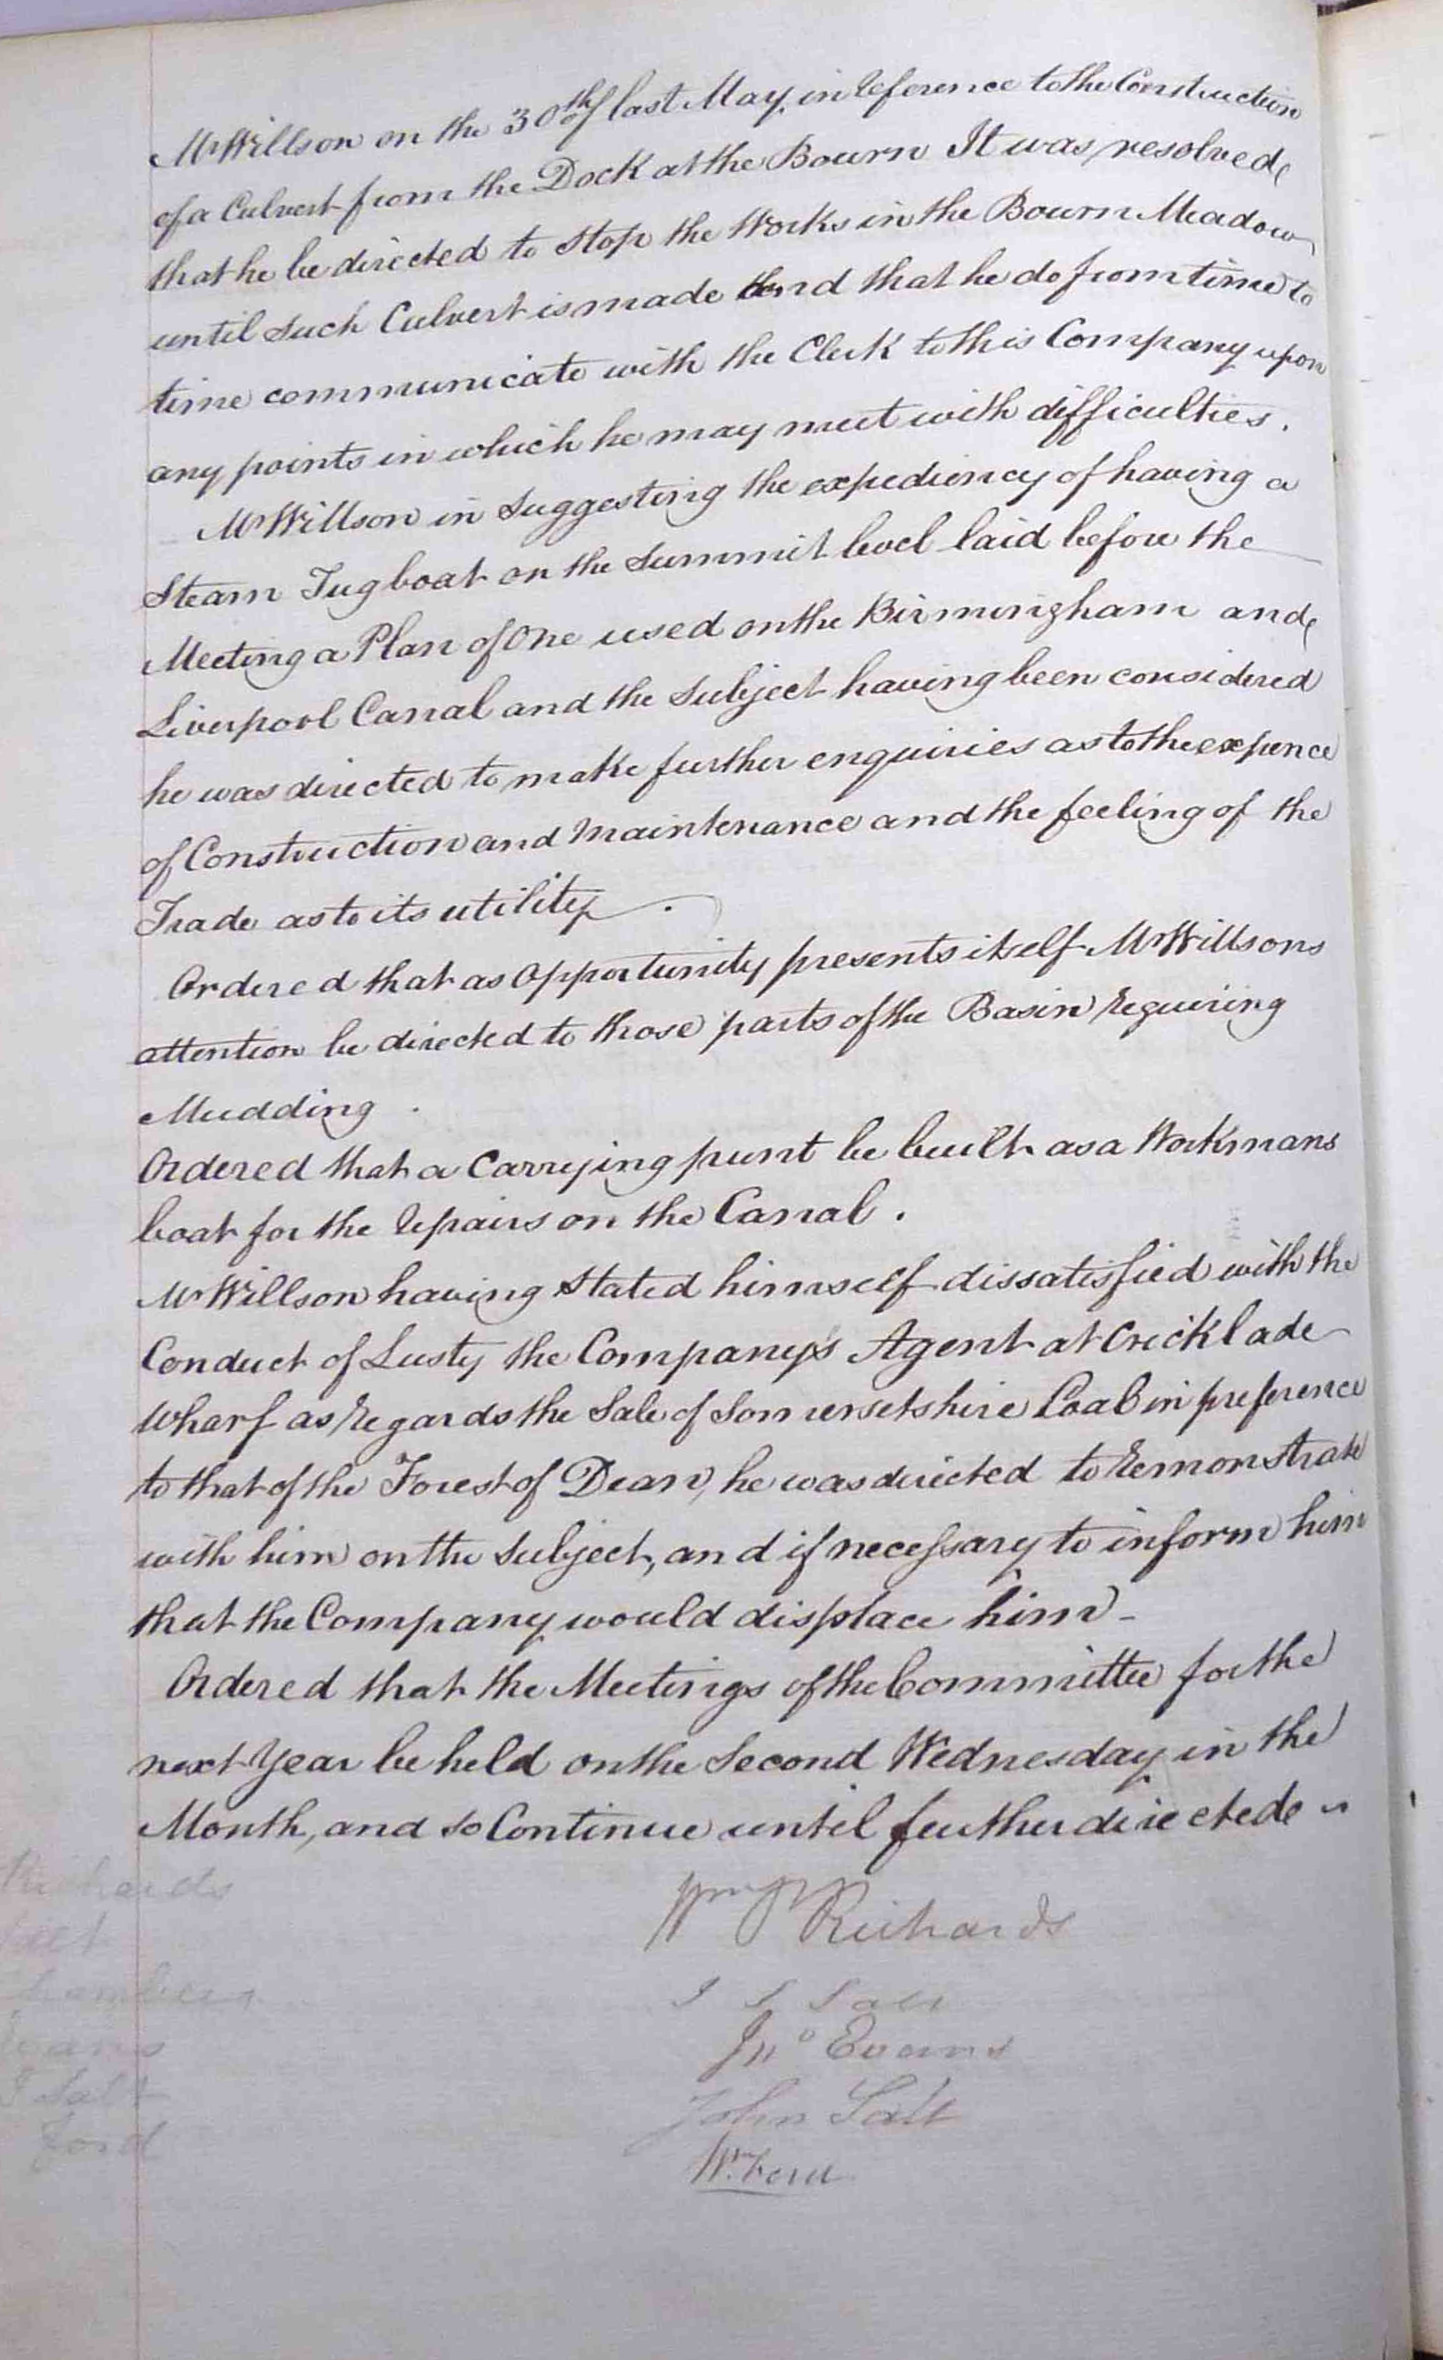 Mr Willson on the 30th of last May, in reference to the Construction
of a Culvert from the Dock at the Bourn It was resolved
that he be directed to stop the Works in the Bourn Meadow
until such Culvert is made and that he do from time to
time communicate with the Clerk to this Company upon
any points in which he may meet with difficulties.
Mr Willson in suggesting the expediency of having a
Steam Tug boat on the Summit level laid before the
Meeting a Plan of One used on the Birmingham and
Liverpool Canal and the Subject having been considered
he was directed to make further enquiries as to the expence
of Construction and Maintenance and the feeling of the
Trade as to its utility.
Ordered that as Opportunity presents itself Mr Willsons
attention be directed to those parts of the Basin requiring
Mudding.
Ordered that a Carrying punt be built as a Workmans
boat for the repairs on the Canal.
Mr Willson having stated himself dissatisfied with the
Conduct of Lusty the Company's Agent at Cricklade
Wharf as regards the Sale of Somersetshire Coal in preference
to that of the Forest of Dean, he was directed to remonstrate
with him on the Subject, and if necessary to inform him
that the Company would displace him -
Ordered that the Meetings of the Committee for the
next Year be held on the Second Wednesday in the
Month, and so Continue until further directed
Richards
Evans
Salt
Ford
Wm Richards
Salt
Jno Evans
John Salt
W. Ford